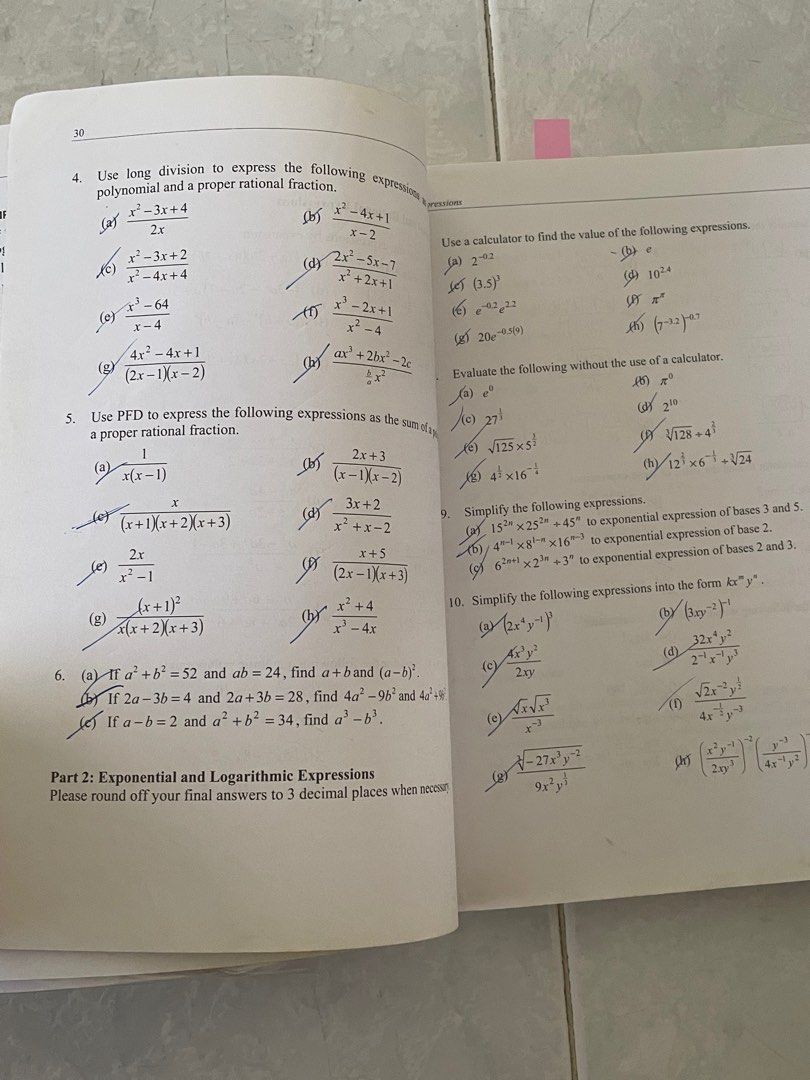 30
4. Use long division to express the following expressions
polynomial and a proper rational fraction.
(a) \frac{x^2-3x+4}{2x} (b) \frac{x^2-4x+1}{x-2}
(c) \frac{x^2-3x+2}{x^2-4x+4} (d) \frac{2x^2-5x-7}{x^2+2x+1}
(e) \frac{x^3-64}{x-4} (f) \frac{x^3-2x+1}{x^2-4}
(g) \frac{4x^2-4x+1}{(2x-1)(x-2)} (h) \frac{ax^3+2bx^2-2c}{\frac{b}{a}x^2}
5. Use PFD to express the following expressions as the sum of a
a proper rational fraction.
(a) \frac{1}{x(x-1)} (b) \frac{2x+3}{(x-1)(x-2)}
(c) \frac{x}{(x+1)(x+2)(x+3)} (d) \frac{3x+2}{x^2+x-2}
(e) \frac{2x}{x^2-1} (f) \frac{x+5}{(2x-1)(x+3)}
(g) \frac{(x+1)^2}{x(x+2)(x+3)} (h) \frac{x^2+4}{x^3-4x}
6. (a) If a^2+b^2=52 and ab=24, find a+b and (a-b)^2.
(b) If 2a-3b=4 and 2a+3b=28, find 4a^2-9b^2 and 4a^2+9b^2
(c) If a-b=2 and a^2+b^2=34, find a^3-b^3.
Part 2: Exponential and Logarithmic Expressions
Please round off your final answers to 3 decimal places when necessary
pressions
Use a calculator to find the value of the following expressions.
(a) 2^{-0.2} (b) e
(c) (3.5)^3 (d) 10^{2.4}
(e) e^{-0.2}e^{2.2} (f) π^π
(g) 20e^{-0.5(9)} (h) (7^{-3.2})^{-0.7}
Evaluate the following without the use of a calculator.
(a) e^0 (b) π^0
(c) 27^{\frac{1}{3}} (d) 2^{10}
(e) \sqrt{125}×5^{\frac{3}{2}} (f) \sqrt[3]{128}÷4^{\frac{2}{3}}
(g) 4^{\frac{1}{2}}×16^{-\frac{1}{4}} (h) 12^{\frac{2}{3}}×6^{-\frac{1}{3}}÷\sqrt[3]{24}
9. Simplify the following expressions.
(a) 15^{2n}×25^{2n}÷45^n to exponential expression of bases 3 and 5.
(b) 4^{n-1}×8^{1-n}×16^{n-3} to exponential expression of base 2.
(c) 6^{2n+1}×2^{3n}÷3^n to exponential expression of bases 2 and 3.
10. Simplify the following expressions into the form kx^m y^n.
(a) (2x^4y^{-1})^3 (b) (3xy^{-2})^{-1}
(c) \frac{4x^3y^2}{2xy} (d) \frac{32x^4y^2}{2^{-1}x^{-1}y^3}
(e) \frac{\sqrt{x}\sqrt{x^3}}{x^{-3}} (f) \frac{\sqrt{2x^{-2}y^{\frac{1}{2}}}}{4x^{-\frac{1}{2}}y^{-3}}
(g) \frac{\sqrt[3]{-27x^3y^{-2}}}{9x^2y^{\frac{1}{3}}} (h) (\frac{x^2y^{-1}}{2xy^3})^{-2}(\frac{y^{-3}}{4x^{-1}y^2})